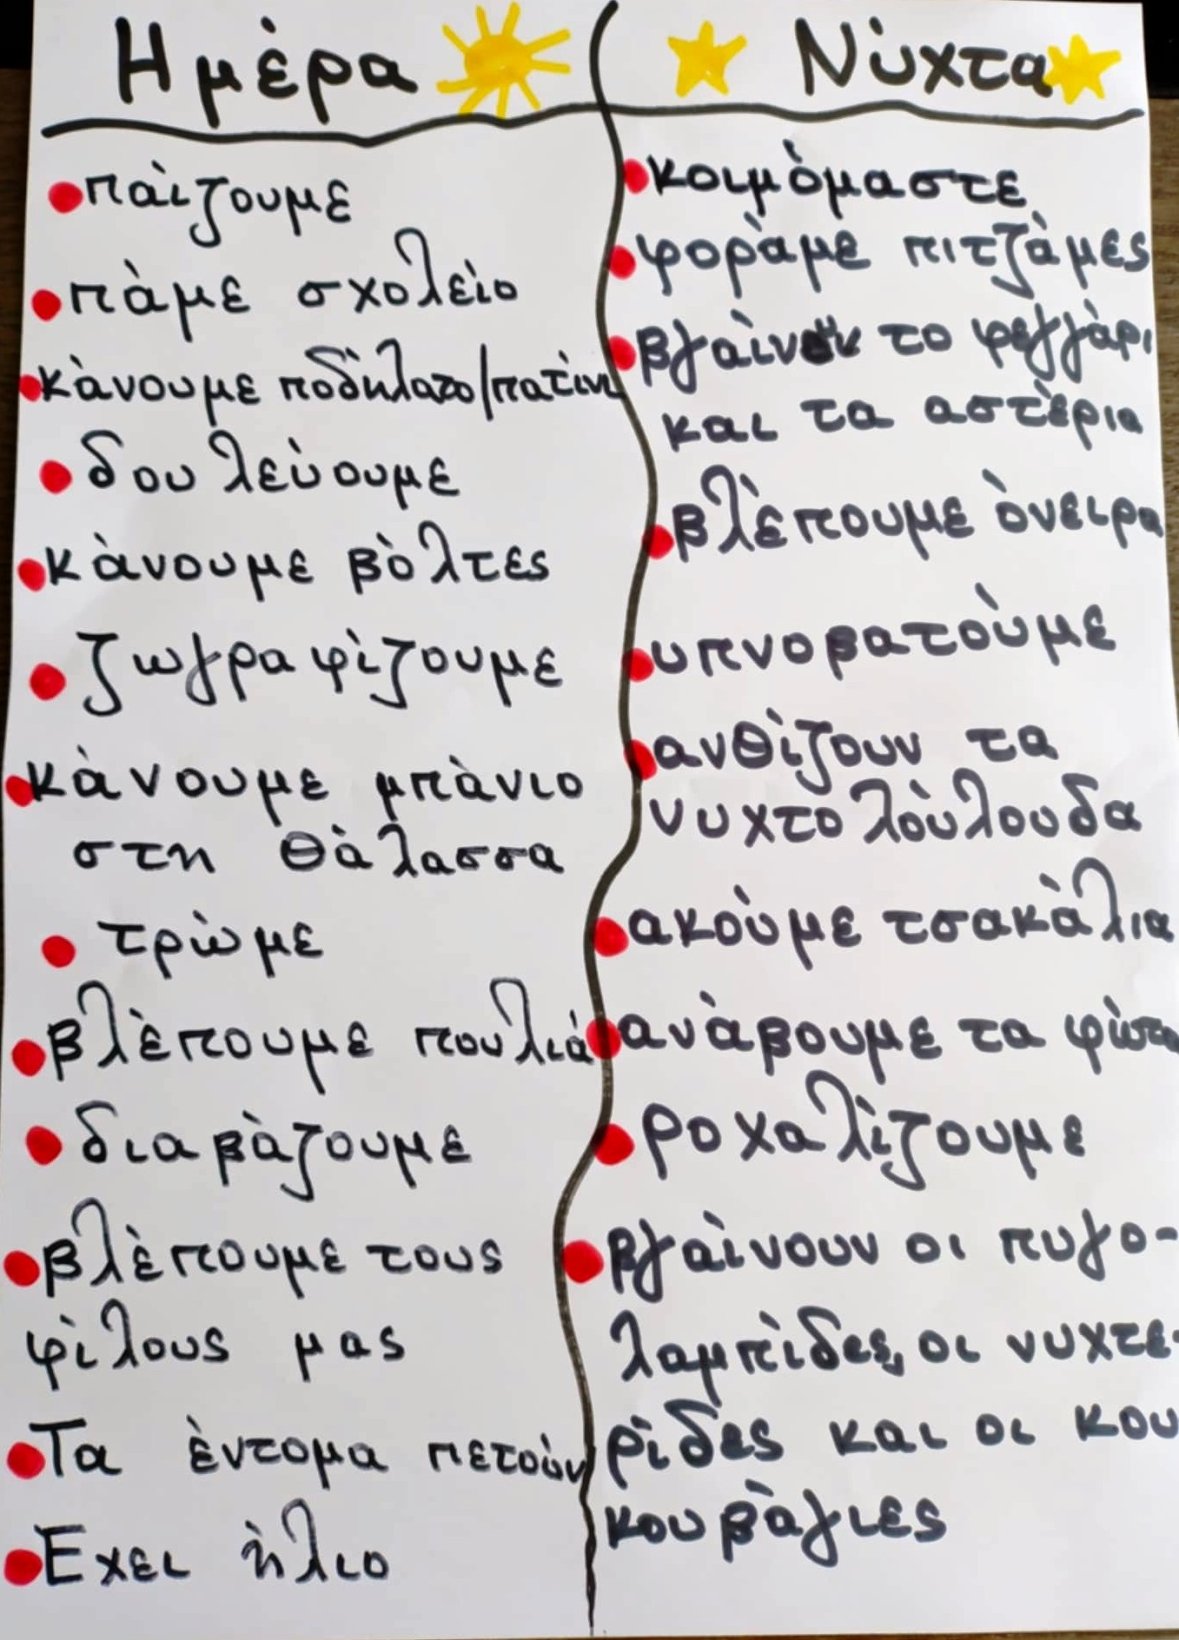 Ημέρα
παίζουμε
πάμε σχολείο
κάνουμε ποδήλατο/πατίνι
δουλεύουμε
κάνουμε βόλτες
ζωγραφίζουμε
κάνουμε μπάνιο
στη θάλασσα
τρώμε
βλέπουμε πουλιά
διαβάζουμε
βλέπουμε τους
φίλους μας
Τα έντομα πετούν
Έχει ήλιο
Νύχτα
κοιμόμαστε
φοράμε πιτζάμες
το φεγγάρι
και τα αστέρια
βλέπουμε όνειρα
υπνοβατούμε
ανθίζουν τα
νυχτολούλουδα
ακούμε τσακάλια
ανάβουμε τα φώτα
ροχαλίζουμε
βγαίνουν οι πυγο-
λαμπίδες, οι νυχτε-
ρίδες και οι κου
κουβάγιες